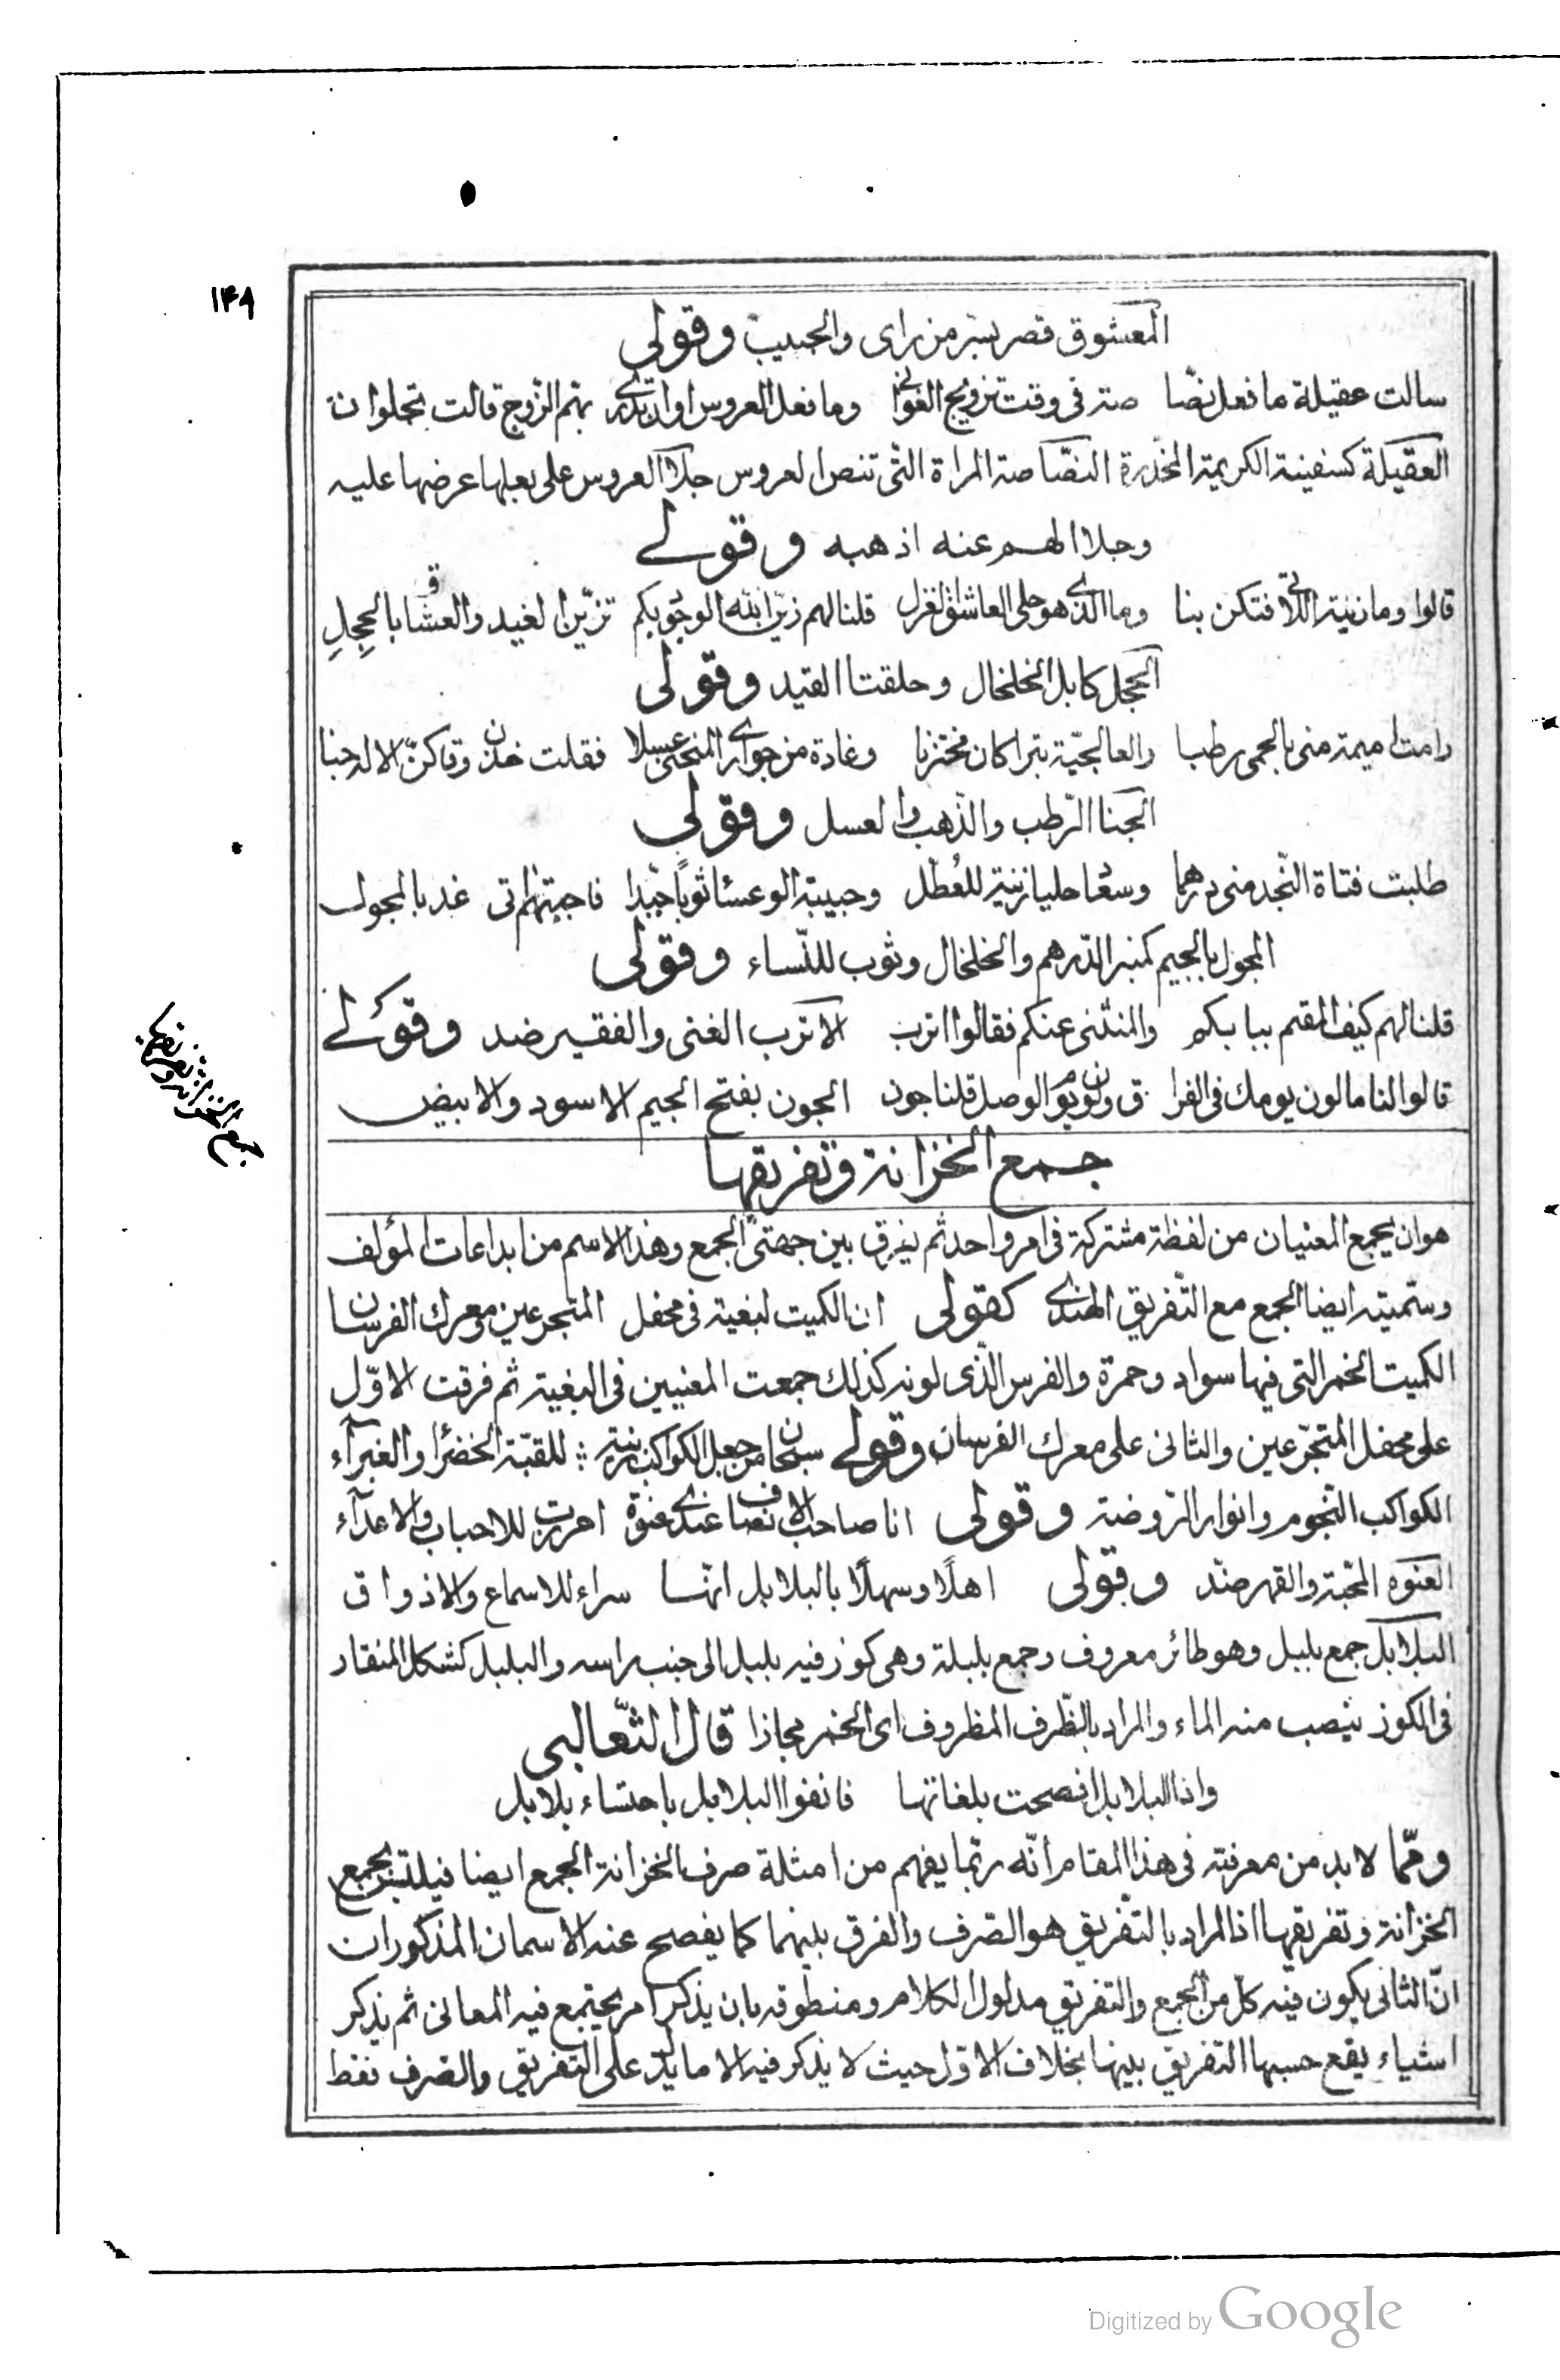 ۱۴۹
المعشوق قصر بسر من رای والحبیب وقولی
سالت عقیلة ما فعل نصّا صة فی وقت تزویج الغوانی وما فعل العروس اوان تری بتم الزوج قالت تجلوان
العقیلة کسفینة الکریمة المخدرة النصّاصة المراة التی تنص العروس جلا العروس علی بعلها عرضها علیه
وجلا الهم عنه اذهبه وقولے
قالوا وما زینة اللاتی فتکن بنا وما الذی هو حلی العاشق الغزل قلنا لهم زین الله الوجود بکم تزین الغید والعشاق بالحجل
الحجل کابل الخلخال وحلقتا القید وقولی
رامت امیمة منی بالحمی رطبا والعالجیّة تبرا کان مختزنا وغادة من جواری المنحنی عسلا فقلت خذن وقاکنّ الاله جنا
الجنا الرّطب والذّهب والعسل وقولی
طلبت فتاة النّجد منی درهما وسعا حلیا زینة للعُطّل وحبیبة الوعسا ثوبًا جیّدا فاجبتهم آتی غد بالمجول
المجول بالجیم کمنبر الدّرهم والخلخال وثوب للنّساء وقولی
قلنا لهم کیف المقیم ببابکم والمنثنی عنکم فقالوا اترب الاترب الغنی والفقیر ضد وقوُلے
قالوا لنا ما لون یومك فی الفرا ق ولون یوم الوصل قلنا جون الجون بفتح الجیم الاسود والابیض
جمع الخزانة وتفریقها
جمع الخزانة وتفریقها
هو ان یجمع المعنیان من لفظة مشترکة فی امر واحد ثم یفرق بین جهتی الجمع وهذا الاسم من ابداعات المؤلف
وسمّیته ایضا الجمع مع التّفریق الهندی کقولی ان الکمیت لبغیة فی محفل المتجرعین ومعرك الفرسان
الکمیت الخمر التی فیها سواد وحمرة والفرس الّذی لونه کذلك جمعت المعنیین فی البغیة ثم فرقت الاوّل
علی محفل المتجرّعین والثانی علی معرك الفرسان وقولے سبحان من جعل الکواکب زینة : للقبّة الخضرا والغبرآء
الکواکب النّجوم وانوار الرّوضة وقولی انا صاحب الانصاف عندی عنوة احرزت للاحباب والاعدآء
العنوه المحّبة والقهر ضدّ وقولی اهلًا وسهلًا بالبلابل انّها سراء للاسماع والاذواق
البلابل جمع بلبل وهو طائر معروف وجمع بلبلة وهی کوز فیه بلبل الی جنب راسه والبلبل کشکل المنقار
فی الکوز ینصب منه الماء والمراد بالظّرف المظروف ای الخمر مجازا قال الثّعالبی
واذا البلابل افصحت بلغاتها فانفوا البلابل باحتساء بلابل
وممّا لابد من معرفته فی هذا المقام انّه ربّما یفهم من امثلة صرف الخزانة الجمع ایضا فیلتبس بجمع
الخزانة وتفریقها اذ المراد بالتّفریق هو الصّرف والفرق بینهما کما یفصح عنه الاسمان المذکوران
انّ الثانی یکون فیه کلّ من الجمع والتفریق مدلول الکلام ومنطوقه بان یذکر امر یجتمع فیه المعانی ثم یذکر
اشیاء یقع حسبها التفریق بینها بخلاف الاوّل حیث لا یذکر فیه الا ما یدل علی التّفریق والصّرف فقط
Digitized by Google